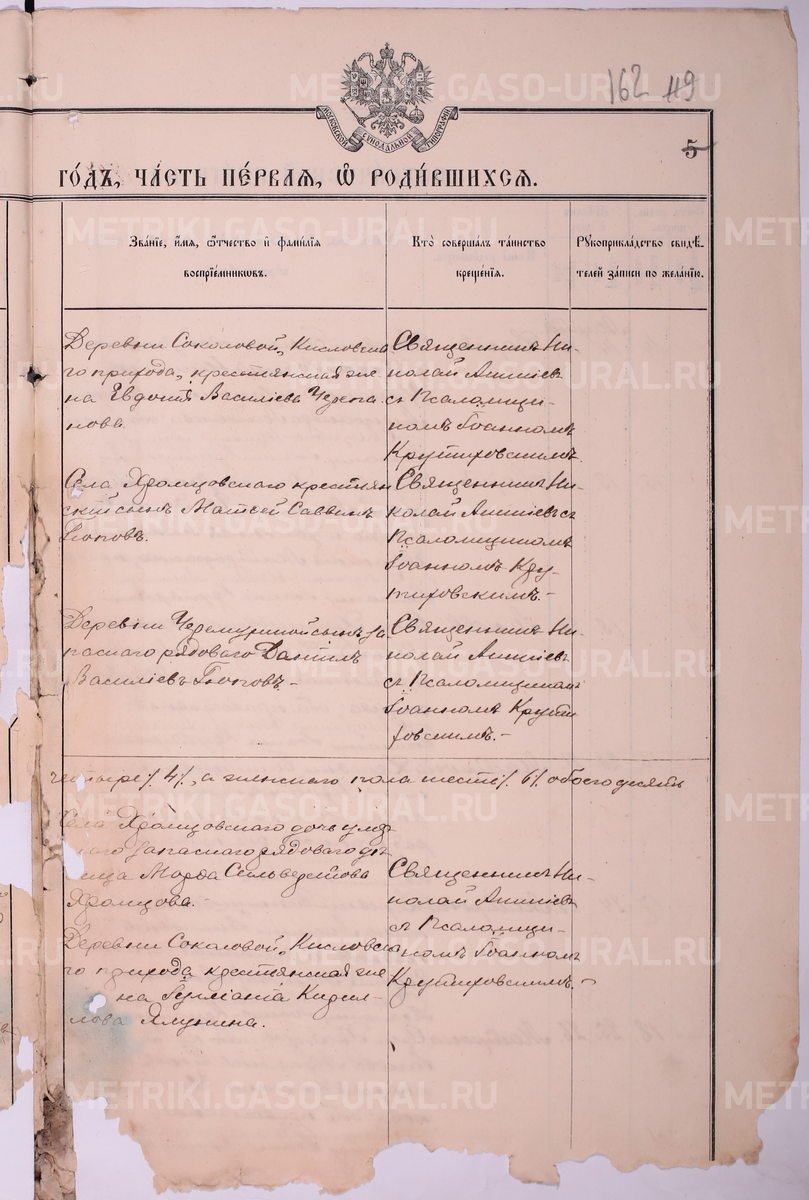 162 119
МОСКОВСКОЙ СѴНОДАЛЬНОЙ ТИПОГРАФІИ
5
ГО́ДЪ, ЧА́СТЬ ПЕ́РВАЯ, Ѡ РОДИ́ВШИХСЯ.
Зва́нїе, и́мя, ѻ҆́тчество и҆ фами́лїя
воспрїе́мникѡвъ.
Кто̀ соверша́лъ та́инство
креще́нїя.
Рꙋкоприкла́дство свидѣ́-
телей за́писи по жела́нїю.
Деревни Соколовой, Кисловска
го прихода, крестьянская же
на Евдокія Васильева Черепа
нова.
Священникъ Ни-
колай Аникіевъ
съ Псаломщи-
комъ Іоанномъ
Крутиховскимъ.
Села Храмцовскаго крестьян
скій сынъ Матвей Саввинъ
Поповъ.
Священникъ Ни-
колай Аникіевъ съ
Псаломщикомъ
Іоанномъ Кру-
тиховскимъ.-
Деревни сынъ за
паснаго рядоваго Даніилъ
Василіевъ Поповъ.-
Священникъ Ни-
колай Аникіевъ
съ Псаломщикомъ
Іоанномъ Крути
ховскимъ.-
четыре /4/, а женскаго пола шесть /6/ обоего десять
Села Храмцовскаго дочь умер
шаго запаснаго рядоваго дѣ
вица Марѳа Сильвестова
Храмцова.-
Деревни Соколовой, Кисловска
го прихода крестьянская же
на Кирил-
лова Ялунина.
Священникъ Ни-
колай Аникіевъ
съ Псаломщи-
комъ Іоанномъ
Крутиховскимъ.-
METRIKI.GASO-URAL.RU